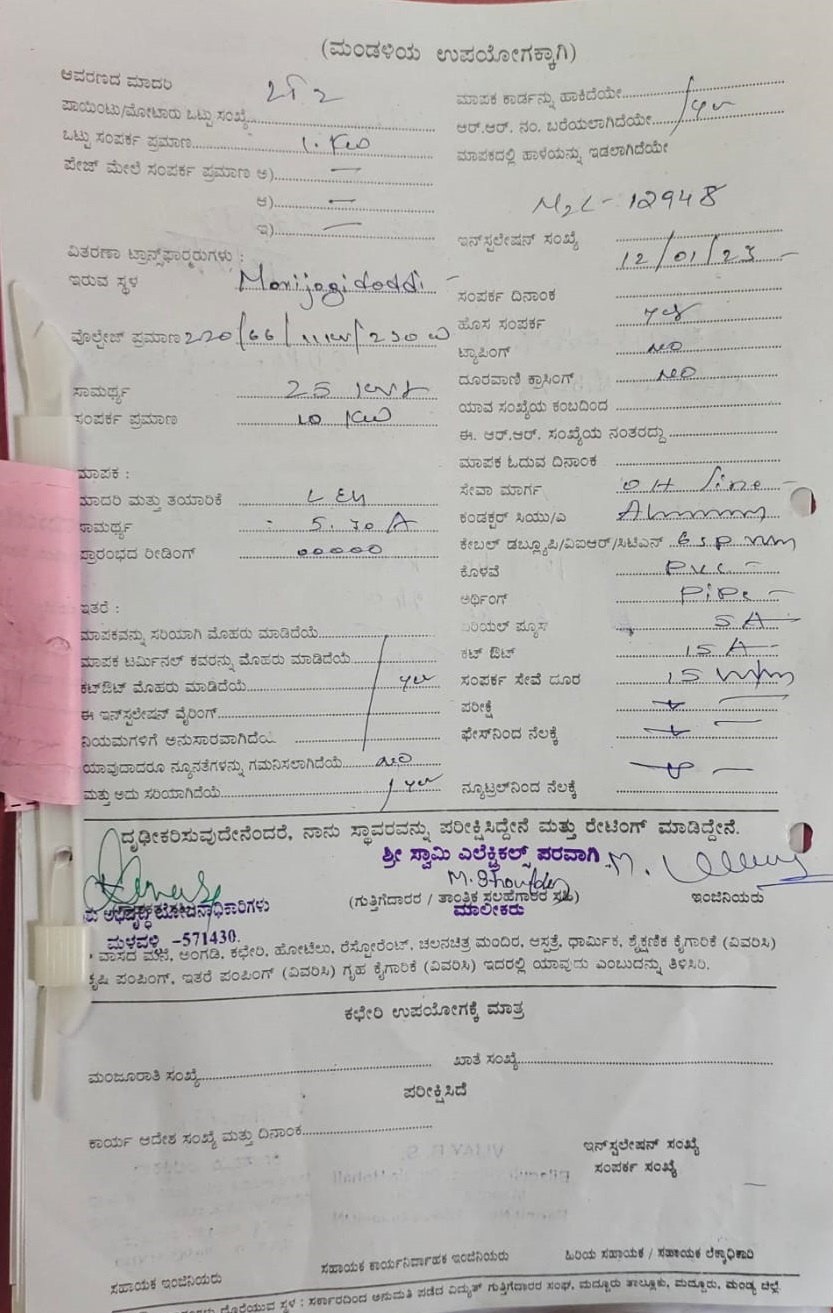 (ಮಂಡಳಿಯ ಉಪಯೋಗಕ್ಕಾಗಿ)
ಆವರಣದ ಮಾದರಿ
ಪಾಯಿಂಟು/ಮೋಟಾರು ಒಟ್ಟು ಸಂಖ್ಯೆ
ಒಟ್ಟು ಸಂಪರ್ಕ ಪ್ರಮಾಣ 1. KW
ಪೇಜ್ ಮೇಲೆ ಸಂಪರ್ಕ ಪ್ರಮಾಣ ಅ) —
ಆ) —
ಇ) —
ವಿತರಣಾ ಟ್ರಾನ್ಸ್‌ಫಾರ್ಮರುಗಳು :
ಇರುವ ಸ್ಥಳ Marijogidoddi
ವೊಲ್ಟೇಜ್ ಪ್ರಮಾಣ 220/66/11KV/230
ಸಾಮರ್ಥ್ಯ 25
ಸಂಪರ್ಕ ಪ್ರಮಾಣ 10 KW
ಮಾಪಕ :
ಮಾದರಿ ಮತ್ತು ತಯಾರಿಕೆ
ಸಾಮರ್ಥ್ಯ 5.30 A
ಪ್ರಾರಂಭದ ರೀಡಿಂಗ್ 00000
ಇತರೆ :
ಮಾಪಕವನ್ನು ಸರಿಯಾಗಿ ಮೊಹರು ಮಾಡಿದೆಯೆ
ಮಾಪಕ ಟರ್ಮಿನಲ್ ಕವರನ್ನು ಮೊಹರು ಮಾಡಿದೆಯೆ
ಕಟ್‌ಔಟ್ ಮೊಹರು ಮಾಡಿದೆಯೆ yes
ಈ ಇನ್‌ಸ್ಟಲೇಷನ್ ವೈರಿಂಗ್
ನಿಯಮಗಳಿಗೆ ಅನುಸಾರವಾಗಿದೆಯೆ
ಯಾವುದಾದರೂ ನ್ಯೂನತೆಗಳನ್ನು ಗಮನಿಸಲಾಗಿದೆಯೆ NO
ಮತ್ತು ಅದು ಸರಿಯಾಗಿದೆಯೆ yes
ಮಾಪಕ ಕಾರ್ಡನ್ನು ಹಾಕಿದೆಯೇ
ಆರ್.ಆರ್. ನಂ. ಬರೆಯಲಾಗಿದೆಯೇ yes
ಮಾಪಕದಲ್ಲಿ ಹಾಳೆಯನ್ನು ಇಡಲಾಗಿದೆಯೇ
M2L-12948
ಇನ್‌ಸ್ಟಲೇಷನ್ ಸಂಖ್ಯೆ
12/01/23
ಸಂಪರ್ಕ ದಿನಾಂಕ
ಹೊಸ ಸಂಪರ್ಕ yes
ಟ್ಯಾಪಿಂಗ್ NO
ದೂರವಾಣಿ ಕ್ರಾಸಿಂಗ್ NO
ಯಾವ ಸಂಖ್ಯೆಯ ಕಂಬದಿಂದ
ಈ. ಆರ್.ಆರ್. ಸಂಖ್ಯೆಯ ನಂತರದ್ದು
ಮಾಪಕ ಓದುವ ದಿನಾಂಕ
ಸೇವಾ ಮಾರ್ಗ OH line
ಕಂಡಕ್ಟರ್ ಸಿಯು/ಎ
ಕೇಬಲ್ ಡಬ್ಲ್ಯೂಪಿ/ವಿಐಆರ್/ಸಿಟಿಎಸ್
ಕೊಳವೆ PVC
ಅರ್ಥಿಂಗ್ PiPe
ಏರಿಯಲ್ ಪ್ಯೂಸ್ 5A
ಕಟ್ ಔಟ್ 15A
ಸಂಪರ್ಕ ಸೇವೆ ದೂರ 15
ಪರೀಕ್ಷೆ
ಫೇಸ್‌ನಿಂದ ನೆಲಕ್ಕೆ
ನ್ಯೂಟ್ರಲ್‌ನಿಂದ ನೆಲಕ್ಕೆ
ದೃಢೀಕರಿಸುವುದೇನೆಂದರೆ, ನಾನು ಸ್ಥಾವರವನ್ನು ಪರೀಕ್ಷಿಸಿದ್ದೇನೆ ಮತ್ತು ರೇಟಿಂಗ್ ಮಾಡಿದ್ದೇನೆ.
ಶ್ರೀ ಸ್ವಾಮಿ ಎಲೆಕ್ಟ್ರಿಕಲ್ಸ್ ಪರವಾಗಿ
(ಗುತ್ತಿಗೆದಾರರ / ತಾಂತ್ರಿಕ ಸಲಹೆಗಾರರ ಸಹಿ) ಇಂಜಿನಿಯರು
ಮಾಲೀಕರು
ಮಳವಳ್ಳಿ -571430.
* ವಾಸದ ಮನೆ, ಅಂಗಡಿ, ಕಛೇರಿ, ಹೋಟೆಲು, ರೆಸ್ಟೋರೆಂಟ್, ಚಲನಚಿತ್ರ ಮಂದಿರ, ಆಸ್ಪತ್ರೆ, ಧಾರ್ಮಿಕ, ಶೈಕ್ಷಣಿಕ ಕೈಗಾರಿಕೆ (ವಿವರಿಸಿ)
ಕೃಷಿ ಪಂಪಿಂಗ್, ಇತರೆ ಪಂಪಿಂಗ್ (ವಿವರಿಸಿ) ಗೃಹ ಕೈಗಾರಿಕೆ (ವಿವರಿಸಿ) ಇದರಲ್ಲಿ ಯಾವುದು ಎಂಬುದನ್ನು ತಿಳಿಸಿರಿ.
ಕಛೇರಿ ಉಪಯೋಗಕ್ಕೆ ಮಾತ್ರ
ಮಂಜೂರಾತಿ ಸಂಖ್ಯೆ ಖಾತೆ ಸಂಖ್ಯೆ
ಪರೀಕ್ಷಿಸಿದೆ
ಕಾರ್ಯ ಆದೇಶ ಸಂಖ್ಯೆ ಮತ್ತು ದಿನಾಂಕ
ಇನ್‌ಸ್ಟಲೇಷನ್ ಸಂಖ್ಯೆ
ಸಂಪರ್ಕ ಸಂಖ್ಯೆ
ಸಹಾಯಕ ಇಂಜಿನಿಯರು ಸಹಾಯಕ ಕಾರ್ಯನಿರ್ವಾಹಕ ಇಂಜಿನಿಯರು ಹಿರಿಯ ಸಹಾಯಕ / ಸಹಾಯಕ ಲೆಕ್ಕಾಧಿಕಾರಿ
ದೊರೆಯುವ ಸ್ಥಳ : ಸರ್ಕಾರದಿಂದ ಅನುಮತಿ ಪಡೆದ ವಿದ್ಯುತ್ ಗುತ್ತಿಗೆದಾರರ ಸಂಘ, ಮದ್ದೂರು ತಾಲ್ಲೂಕು, ಮದ್ದೂರು, ಮಂಡ್ಯ ಜಿಲ್ಲೆ.